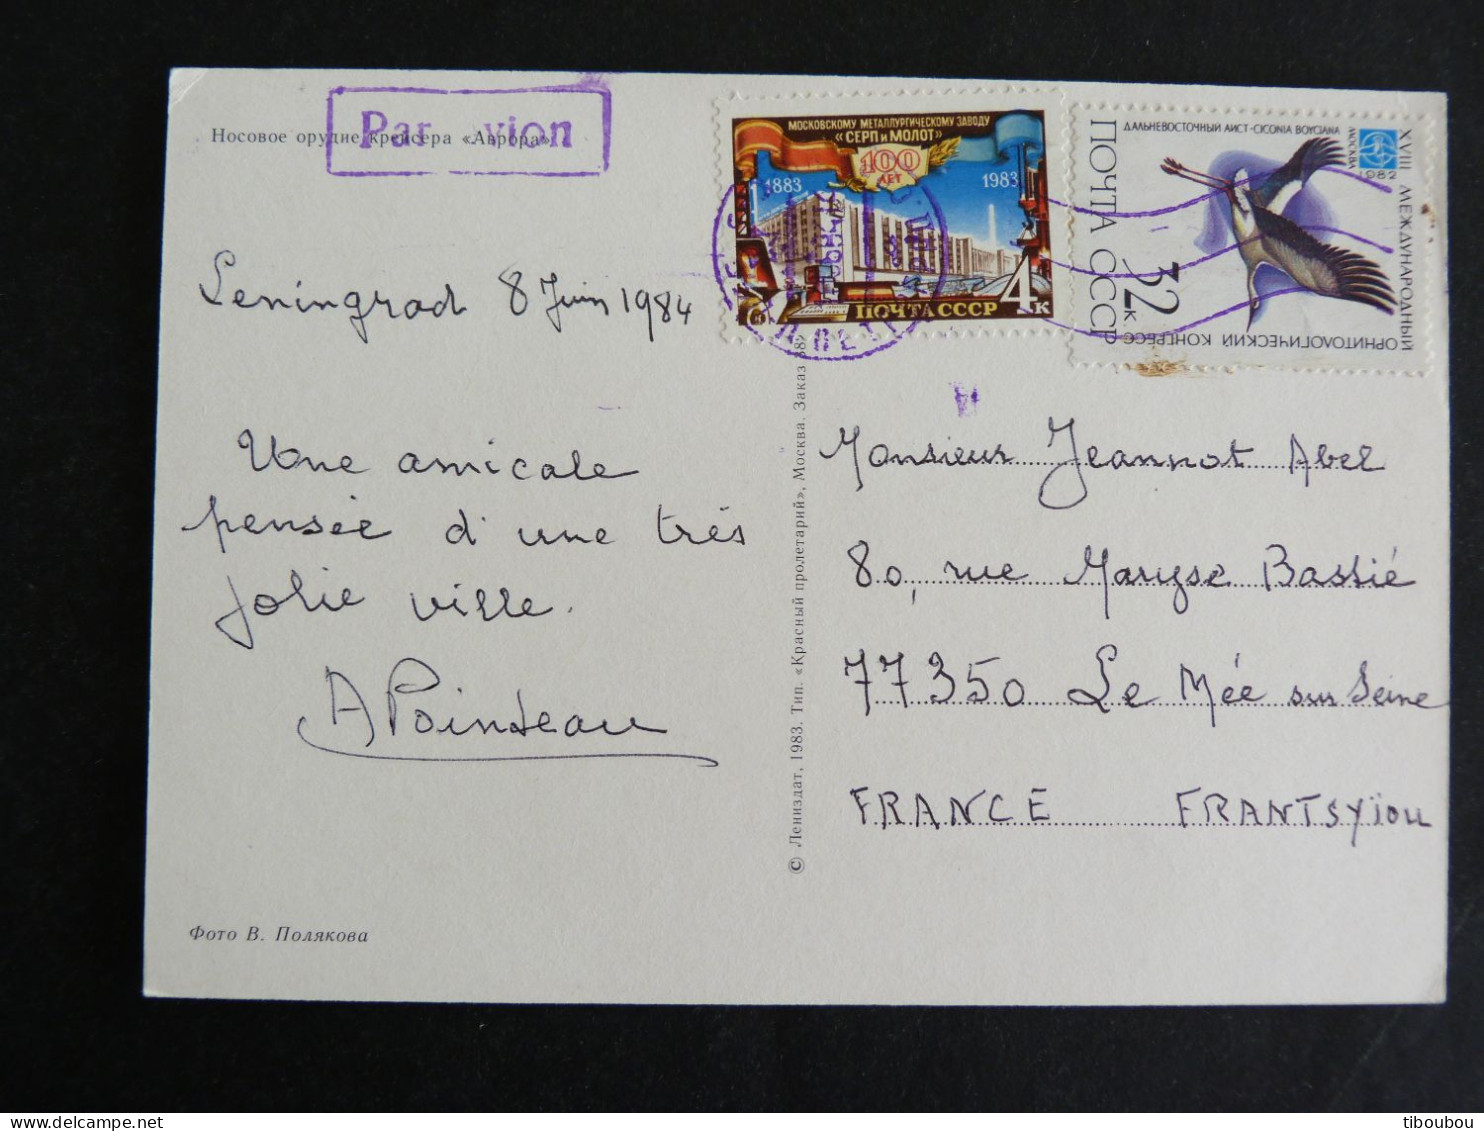 Par avion
Носовое орудие крейсера «Аврора»
Leningrad 8 Juin 1984
Une amicale
pensée d'une très
jolie ville.
A Pointeau
Фото В. Полякова
МОСКОВСКОМУ МЕТАЛЛУРГИЧЕСКОМУ ЗАВОДУ
«СЕРП и МОЛОТ»
100
ЛЕТ
1883
1983
4к
ПОЧТА СССР
ДАЛЬНЕВОСТОЧНЫЙ АИСТ-CICONIA BOYCIANA
МОСКВА
1982
XVIII МЕЖДУНАРОДНЫЙ
ОРНИТОЛОГИЧЕСКИЙ КОНГРЕСС
ПОЧТА СССР
32к.
© Лениздат, 1983. Тип. «Красный пролетарий», Москва. Заказ
Monsieur Jeannot Abel
80, rue Maryse Bastié
77350 Le Mée sur Seine
FRANCE FRANTSYïou
tiboubou